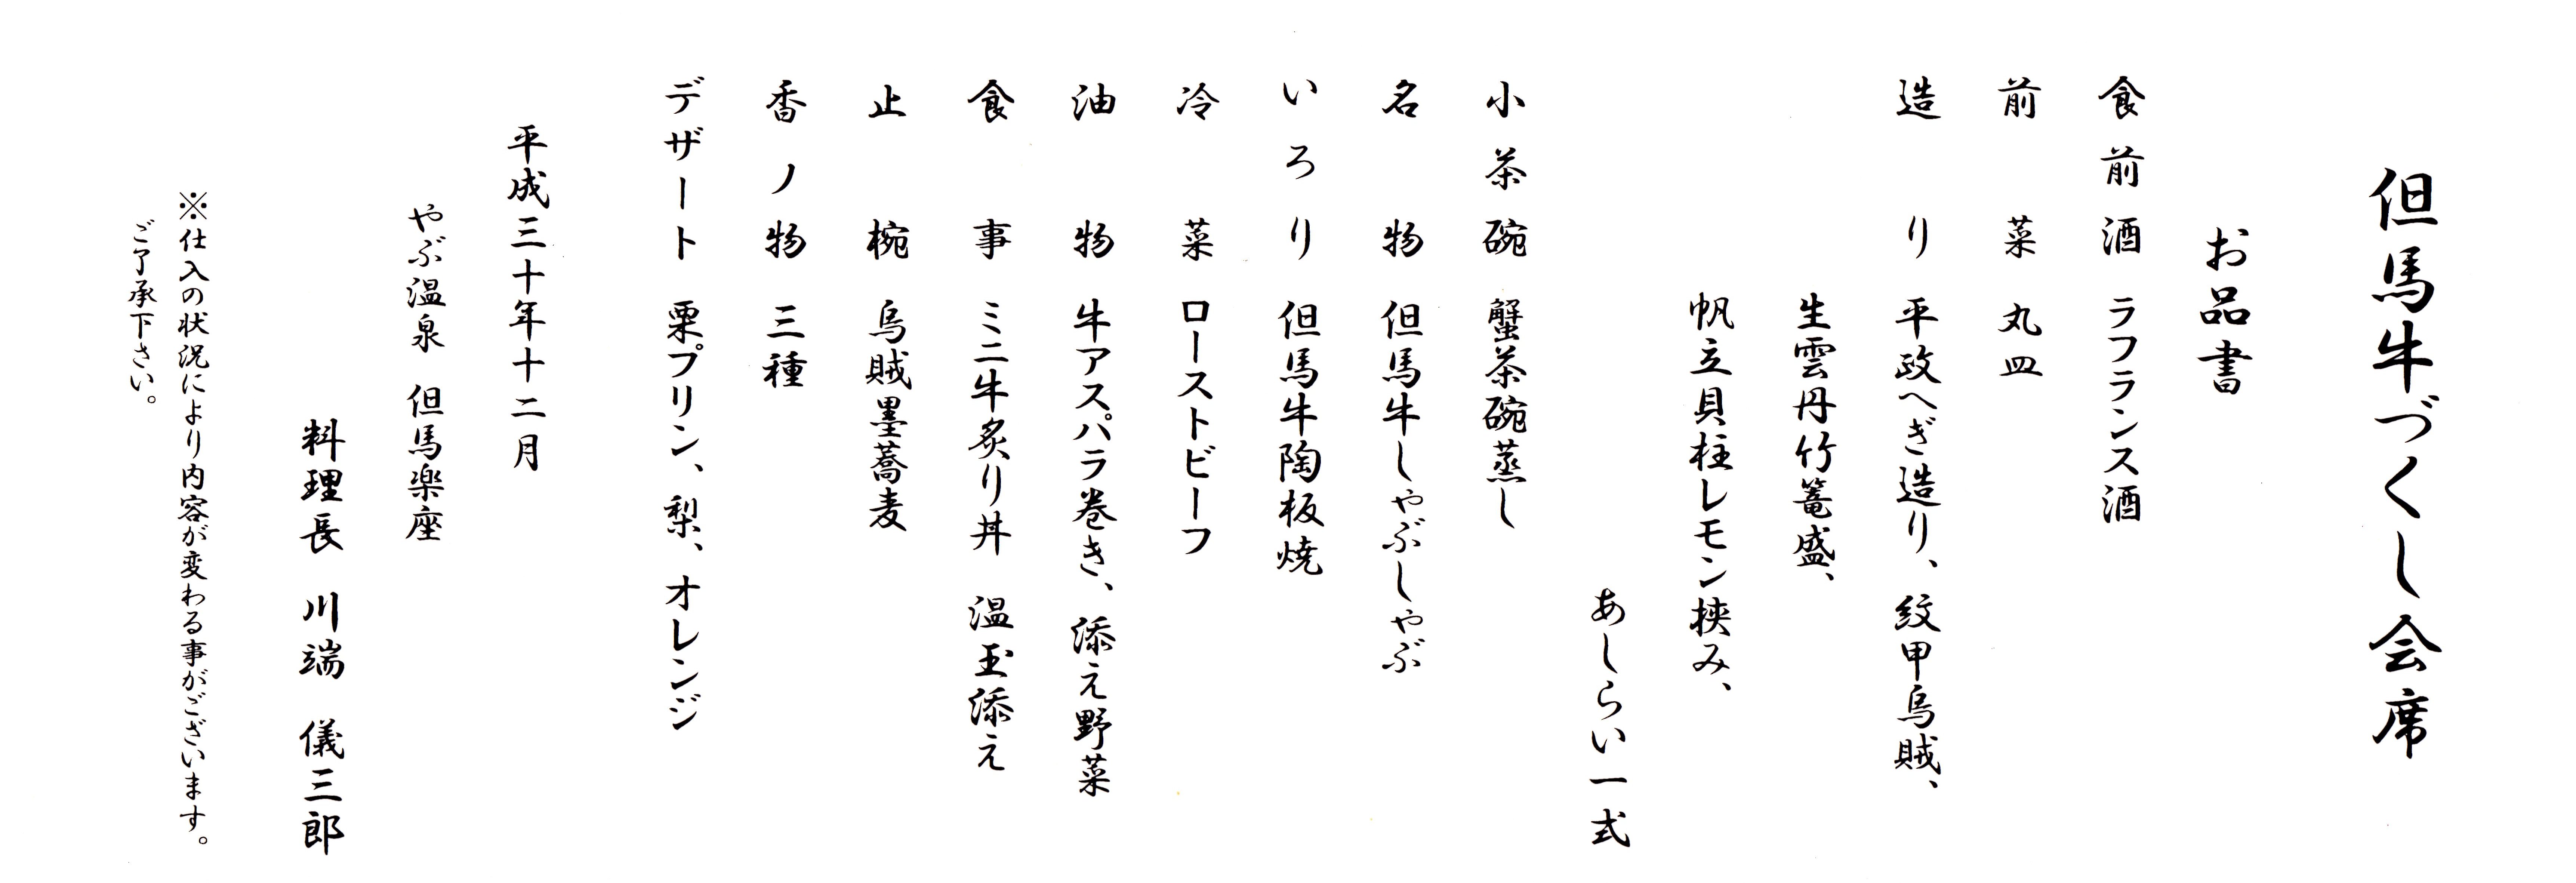 但馬牛づくし会席
お品書
食前酒　ラフランス酒
前菜　丸皿
造り　平政へぎ造り、紋甲烏賊、
生雲丹竹篭盛、
帆立貝柱レモン挟み、
あしらい一式
小茶碗　蟹茶碗蒸し
名物　但馬牛しゃぶしゃぶ
いろり　但馬牛陶板焼
冷菜　ローストビーフ
油物　牛アスパラ巻き、添え野菜
食事　ミニ牛炙り丼　温玉添え
止椀　烏賊墨蕎麦
香ノ物　三種
デザート　栗プリン、梨、オレンジ
平成三十年十二月
やぶ温泉　但馬楽座
料理長　川端　儀三郎
※仕入の状況により内容が変わる事がございます。
ご了承下さい。